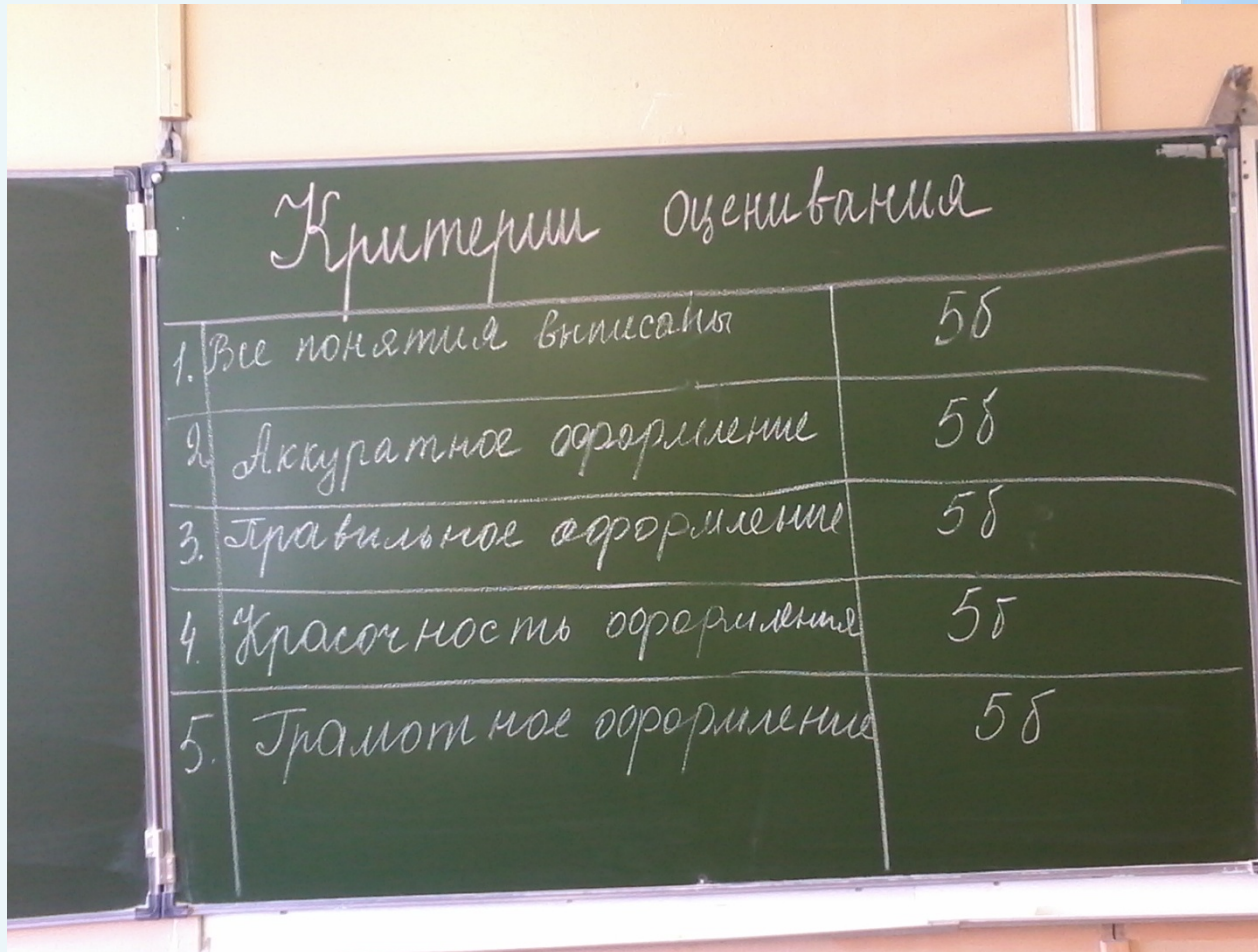 Критерии оценивания
1. Все понятия выписаны 5б
2. Аккуратное оформление 5б
3. Правильное оформление 5б
4. Красочность оформления 5б
5. Грамотное оформление 5б